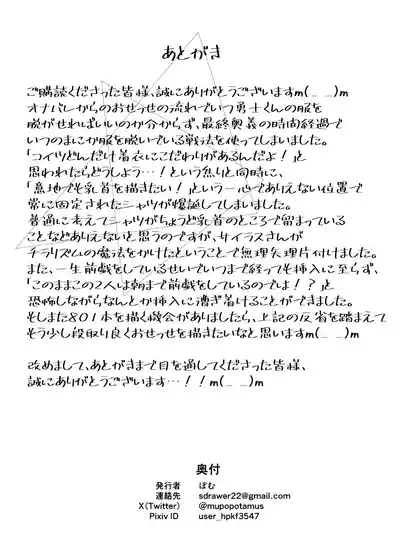 あとがき
ご購読くださった皆様、誠にありがとうございますm(_ _)m
オナバレからのおせっせの流れでいつ勇士くんの服を
脱がせればいいのか分からず、最終奥義の時間経過で
いつのまにか服を脱いでいる戦法を使ってしまいました。
「コイツどんだけ着衣にこだわりがあるんだよ!」と
思われたらどうしよう…!という焦りと同時に、
「意地でも乳首を描きたい!」という一心でありえない位置で
常に固定されたシャツが爆誕してしまいました。
普通に考えてシャツがちょうど乳首のところで留まっている
ことなどありえないと思うのですが、サイラスさんが
チラリズムの魔法をかけたということで無理矢理片付けました。
また、一生前戯をしているせいでいつまで経っても挿入に至らず、
「このままこの2人は朝まで前戯をしているのでは!?」と
恐怖しながらなんとか挿入に漕ぎ着けることができました。
もしまた801本を描く機会がありましたら、上記の反省を踏まえて
もう少し段取り良くおせっせを描きたいなと思いますm(_ _)m
改めまして、あとがきまで目を通してくださった皆様、
誠にありがとうございます…!!m(_ _)m
奥付
発行者 ぽむ
連絡先 sdrawer22@gmail.com
X(Twitter) @mupopotamus
Pixiv ID user_hpkf3547